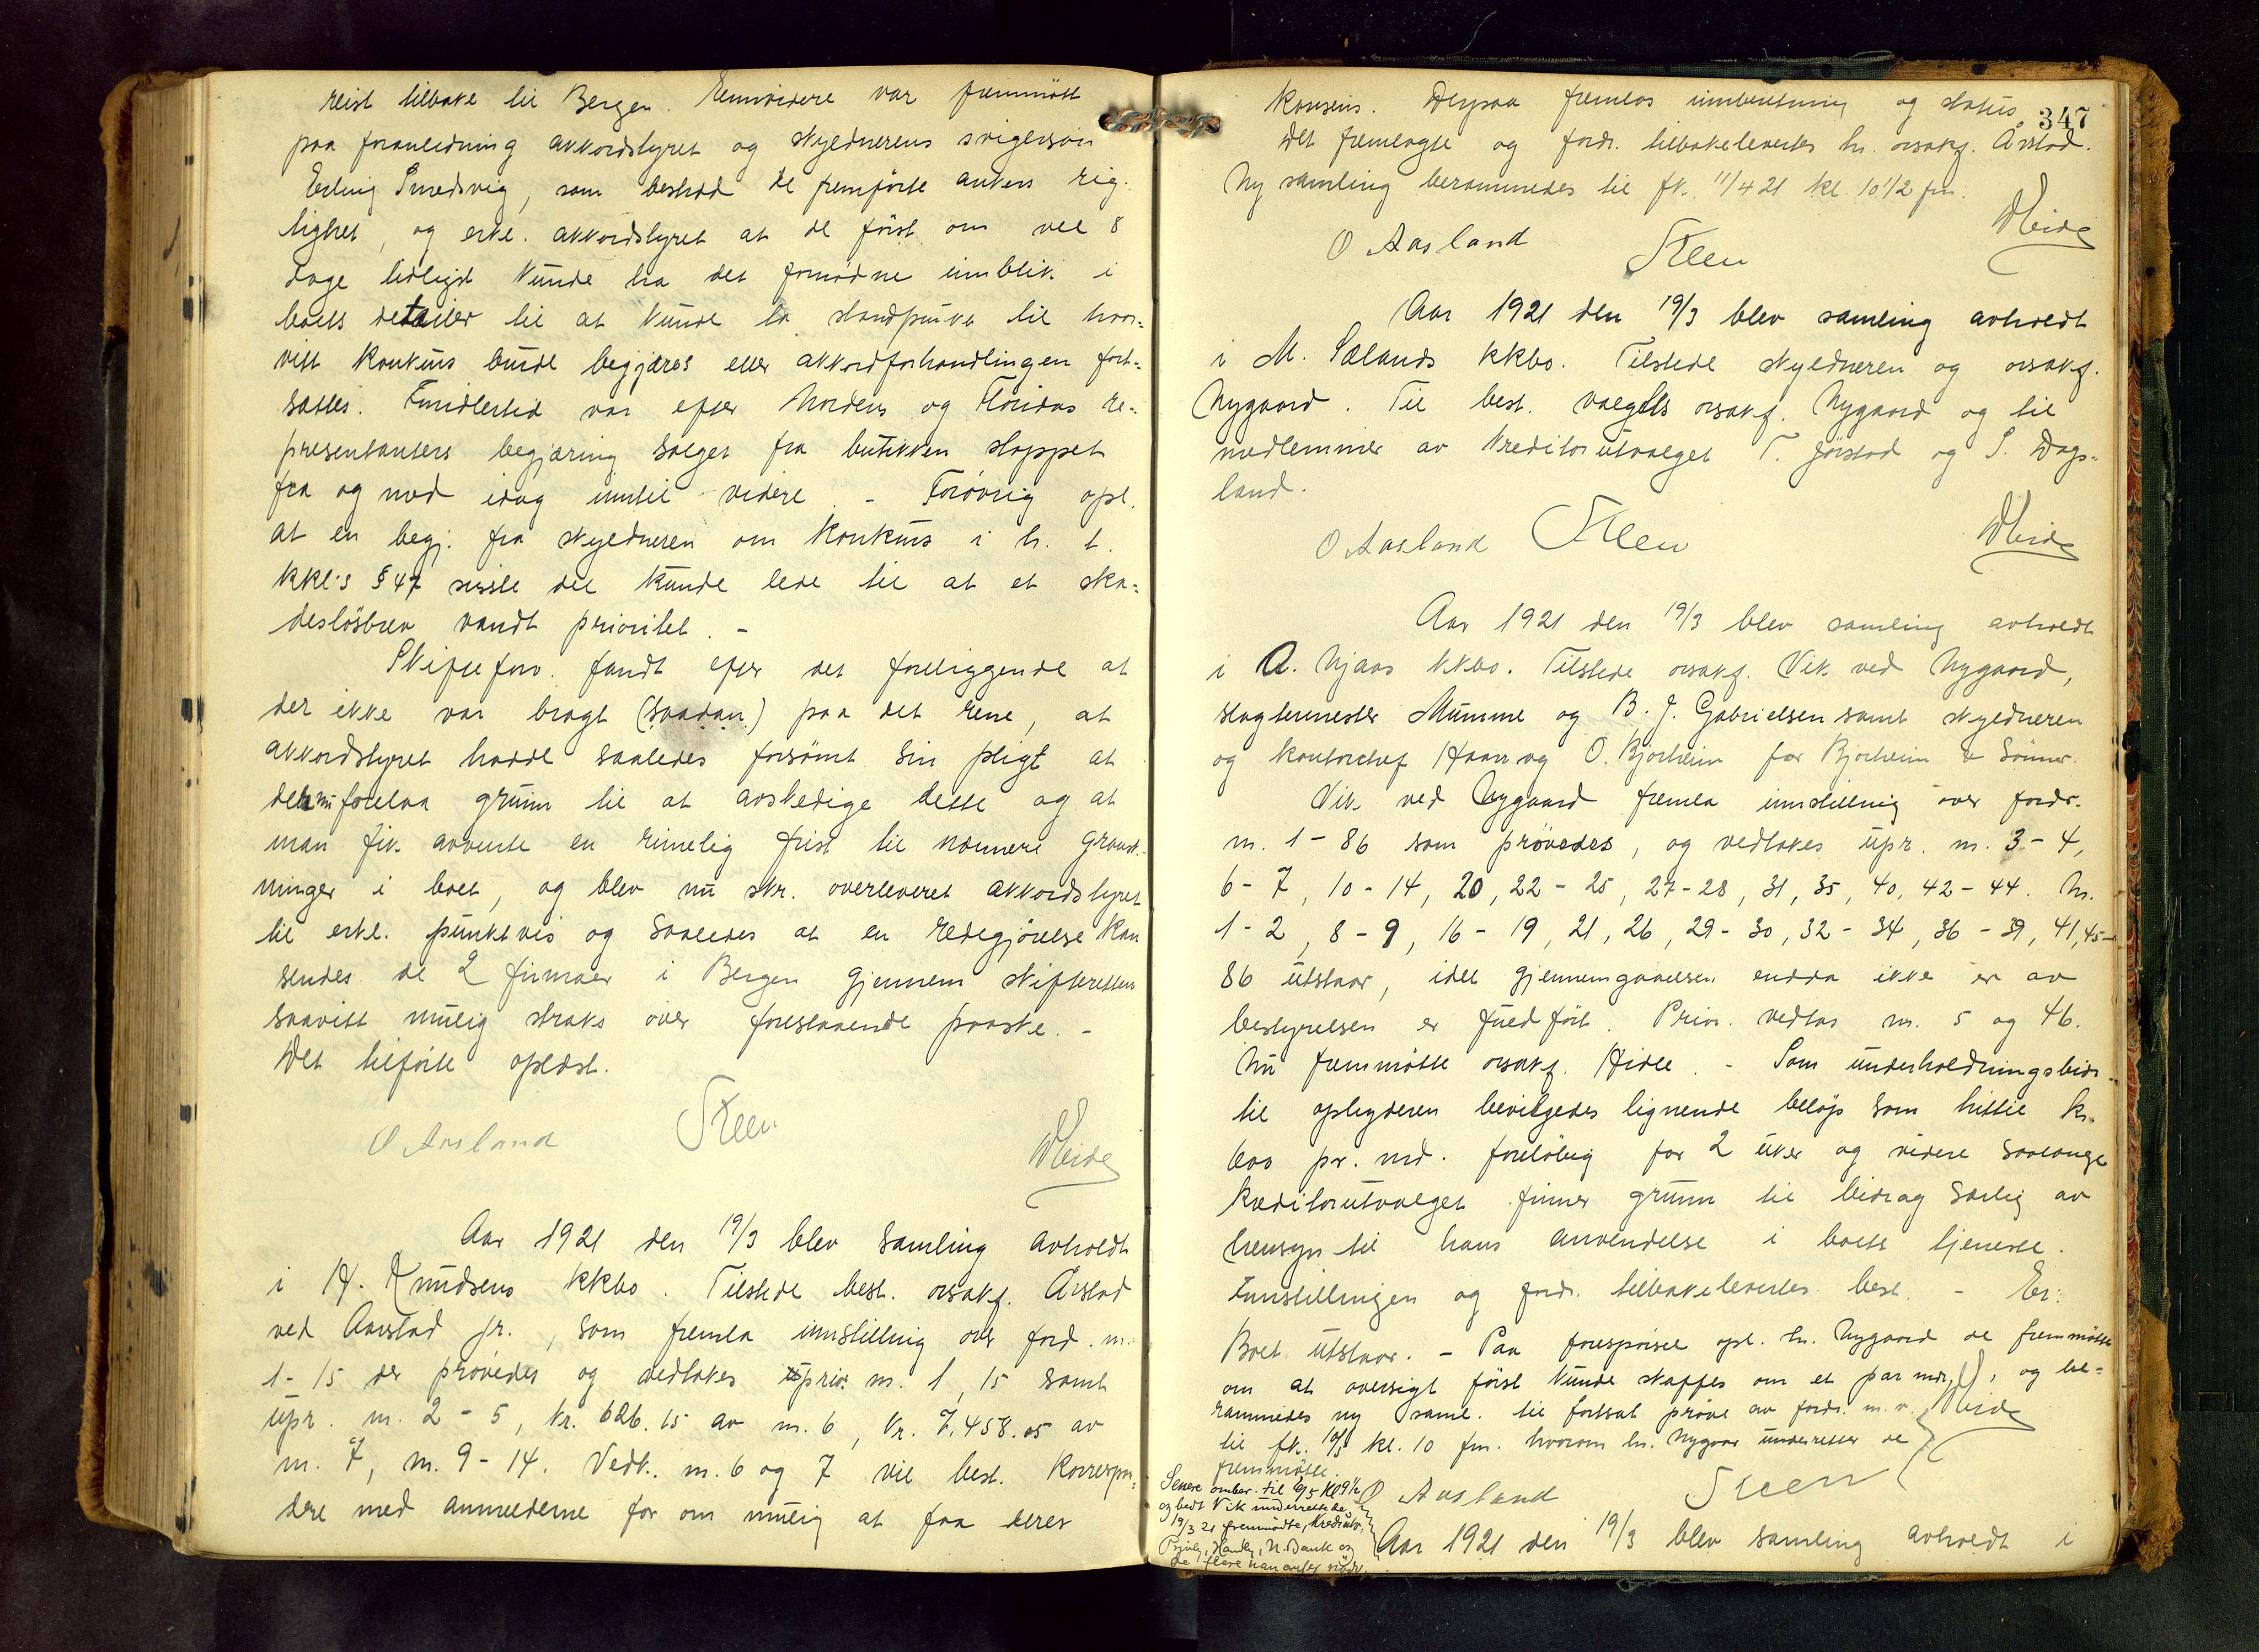 reist tilbake til Bergen. Ennvidere var fremmøtt
paa foranledning akkordstyret og skyldnerens svigersøn
Erling Smedsvig, som bestred de fremførte ankers rig-
tighet, og erkl. akkordstyret at de først om vel 8
dage tidligst kunde ha det fornødne innblik i
boets detailer til at kunde ta standpunkt til hvor-
vidt konkurs burde begjæres eller akkordforhandlingen fort-
sættes. Imidlertid var efter Nordens og Floridas re-
presentanters begjæring salget fra butikken stoppet
fra og med idag inntil videre. - Forøvrig opl.
at en begj. fra skyldneren om konkurs i h. t.
kkl's § 47 sidste del kunde lede til at et ska-
desløsbrev vandt prioritet. -
Skifteforv. fandt efter det foreliggende at
der ikke var bragt (saadan) paa det rene, at
akkordstyret hadde saaledes forsømt sin pligt at
der nu forelaa grunn til at avskedige dette og at
man fik avvente en rimelig frist til nærmere gransk-
ninger i boet, og blev nu skr. overleveret akkordstyret
til erkl. punktvis og saaledes at en redegjørelse kan
sendes de 2 firmaer i Bergen gjennem skifteretten
saavidt mulig straks over forestaaende paaske. -
Det tilførte oplæst.
O Aasland Steen Meide
Aar 1921 den 19/3 blev samling avholdt
i H. Knudsens kkbo. Tilstede best. orsakf. Årstad
ved Aarstad jr., som fremla innstilling over ford. nr.
1-15 der prøvedes og vedtokes prior. nr. 1, 15 samt
upr. nr. 2 - 5, kr. 626.15 av nr. 6, kr. 7.458.05 av
nr. 7, nr. 9 - 14. Vedk. nr. 6 og 7 vil best. korrespon-
dere med anmelderne for om mulig at faa deres
347
konsens. Derpaa fremlas innberetning og status
Det fremlagte og fordr. tilbakelevertes hr. orsakf. Årstad.
Ny samling berammedes til fk. 11/4 21 kl. 10 1/2 fm.
O Aasland Steen Meide
Aar 1921 den 19/3 blev samling avholdt
i M. Sælands kkbo. Tilstede skyldneren og orsakf.
Nygaard. Til best. valgtes orsakf. Nygaard og til
medlemmer av kreditorutvalget T. Jörstad og S. Dags-
land.
O Aasland Steen Meide
Aar 1921 den 19/3 blev samling avholdt
i A. Njaas kkbo. Tilstede orsakf. Vik ved Nygaard,
slagtermester Mumme og B. J. Gabrielsen samt skyldneren
og kontorchef Haar og O. Bjorheim for Bjorheim & Sönner.
Vik ved Nygaard fremla innstilling over fordr.
nr. 1 - 86 som prøvedes, og vedtokes upr. nr. 3 - 4,
6 - 7, 10 - 14, 20, 22 - 25, 27 - 28, 31, 35, 40, 42 - 44. Nr.
1 - 2, 8 - 9, 16 - 19, 21, 26, 29 - 30, 32 - 34, 36 - 39, 41, 45 -
86 utstaar, idet gjennemgaaelsen endda ikke er av
bestyrelsen er fuldført. Prior. vedtas nr. 5 og 46.
Nu fremmøtte orsakf. Hidle. - Som underholdningsbidr.
til opbyderen bevilgedes lignende beløp som hittil kr.
600 pr. md. foreløbig for 2 uker og videre saalænge
kreditorutvalget finner grunn til bidrag særlig av
hensyn til hans anvendelse i boets tjeneste.
Innstillingen og fordr. tilbakelevertes best. - Er:
Boet utstaar. - Paa forespørsel opl. hr. Nygaard de fremmøtte
om at oversigt først kunde skaffes om et par mdr., og be-
rammedes ny saml. til fortsat prøve av fordr. m. v. Meide
til fk. 10/5 kl. 10 fm. hvorom hr. Nygaar underretter de
fremmøtte.
O Aasland Steen
Senere omber. til 6/5 kl 9 1/2
og bedt Vik underrette de
19/3 21 fremmødte, Kreditutv.,
Privb, Handb, N. Bank og
de flere han anser nødv.
Aar 1921 den 19/3 blev samling avholdt i